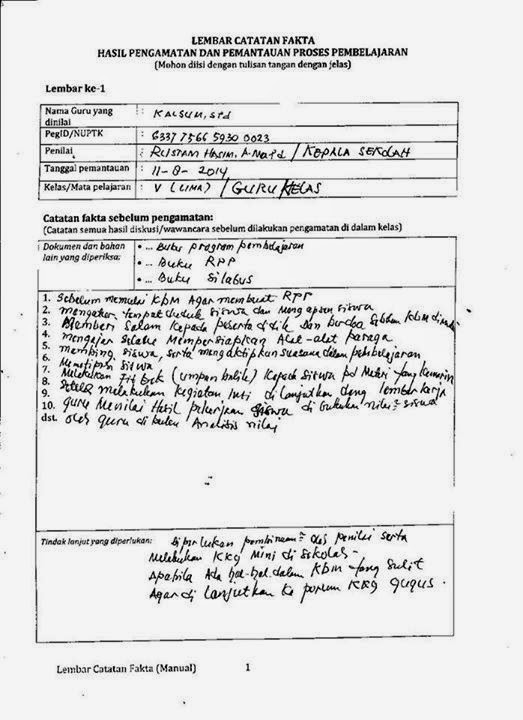 LEMBAR CATATAN FAKTA
HASIL PENGAMATAN DAN PEMANTAUAN PROSES PEMBELAJARAN
(Mohon diisi dengan tulisan tangan dengan jelas)
Lembar ke-1
Nama Guru yang dinilai : KALSUM, SPd
PegID/NUPTK : 6337 7566 5930 0023
Penilai : RUSTAM HASIM, A.Ma.Pd / KEPALA SEKOLAH
Tanggal pemantauan : 11-8-2014
Kelas/Mata pelajaran : V (LIMA) / GURU KELAS
Catatan fakta sebelum pengamatan:
(Catatan semua hasil diskusi/wawancara sebelum dilakukan pengamatan di dalam kelas)
Dokumen dan bahan lain yang diperiksa:
• ... Buku program pembelajaran
• ... Buku RPP
• ... Buku Silabus
1. Sebelum memulai KBM Agar membuat RPP
2. mengatur tempat duduk siswa dan mengapsen siswa
3. Memberi Salam Kepada peserta didik Dan berdoa Sebelum KBM
4. mengajar Selalu Mempersiapkan Alat-alat Peraga
5. membimbing siswa, serta mengaktifkan suasana dalam pembelajaran
6. siswa
7. Melakukan (umpan balik) Kepada Siswa Materi yang kemarin
8. Setelah melakukan Kegiatan Inti di lanjutkan deng lembar kerja
9.
10. guru Menilai Hasil pekerjaan Siswa di bukukan nilai² siswa
dst. oleh guru di buku Analisis nilai
Tindak lanjut yang diperlukan: Di perlukan pembinaan² dari Penilai serta
Melakukan KKG Mini di sekolah -
Apabila Ada hal-hal dalam KBM yang Sulit
Agar di lanjutkan ke porum KKG gugus.
Lembar Catatan Fakta (Manual) 1